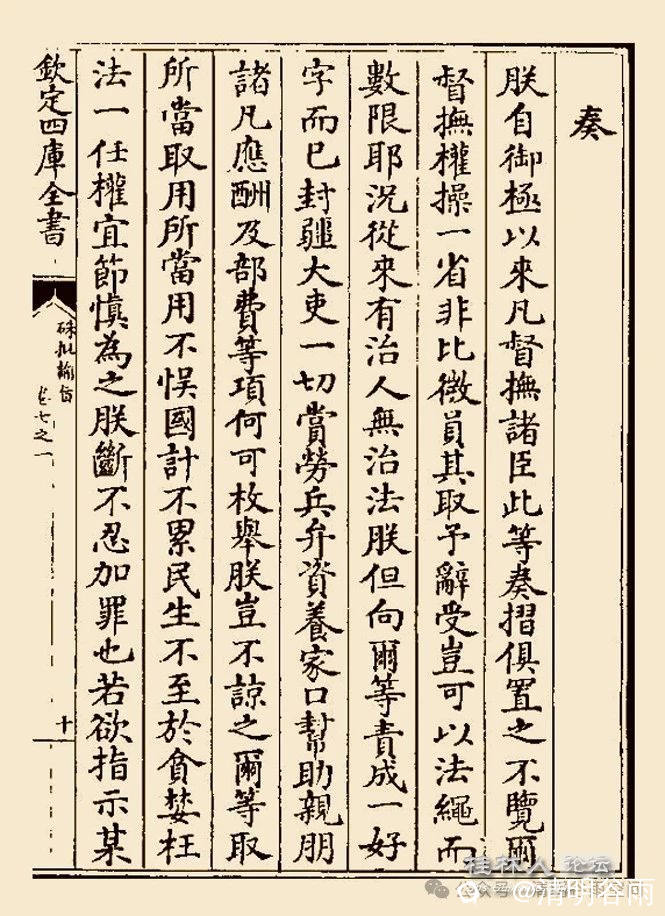 奏
朕自御極以來凡督撫諸臣此等奏摺俱置之不覽爾
督撫權操一省非比微員其取予辭受豈可以法繩而
數限耶況從來有治人無治法朕但向爾等責成一好
字而已封疆大吏一切賞勞兵弁資養家口幫助親朋
諸凡應酬及部費等項何可枚舉朕豈不諒之爾等取
所當取用所當用不悞國計不累民生不至於貪婪枉
法一任權宜節慎為之朕斷不忍加罪也若欲指示某
欽定四庫全書
硃批諭旨
卷七之一
十
桂林人论坛
公众号
@清明谷雨